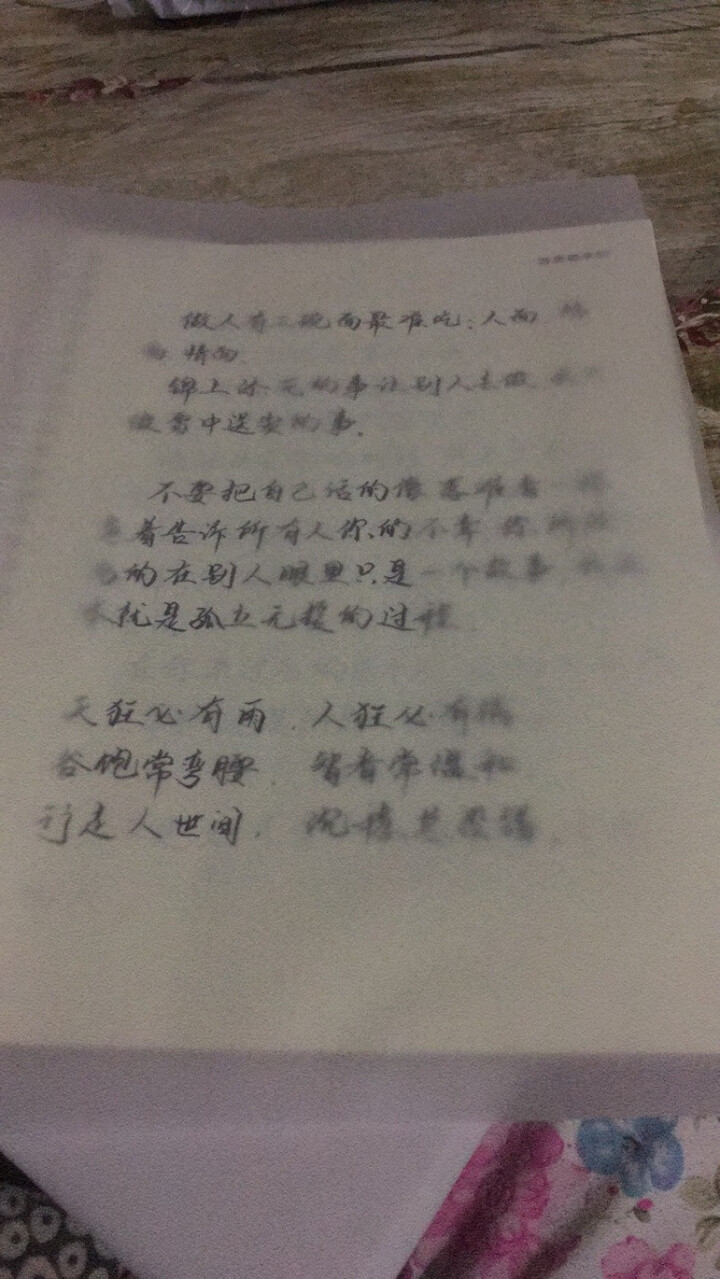 做人有三碗面最难吃:人面 场
面 情面.
锦上添花的事让别人去做
做雪中送炭的事.
不要把自己活的像 落难者 一样
着告诉所有人你的不幸 你所
的在别人眼里只是一个故事
就是孤立无援的过程
天狂必有雨. 人狂必有祸
谷饱常弯腰 智者常
行走人世间.